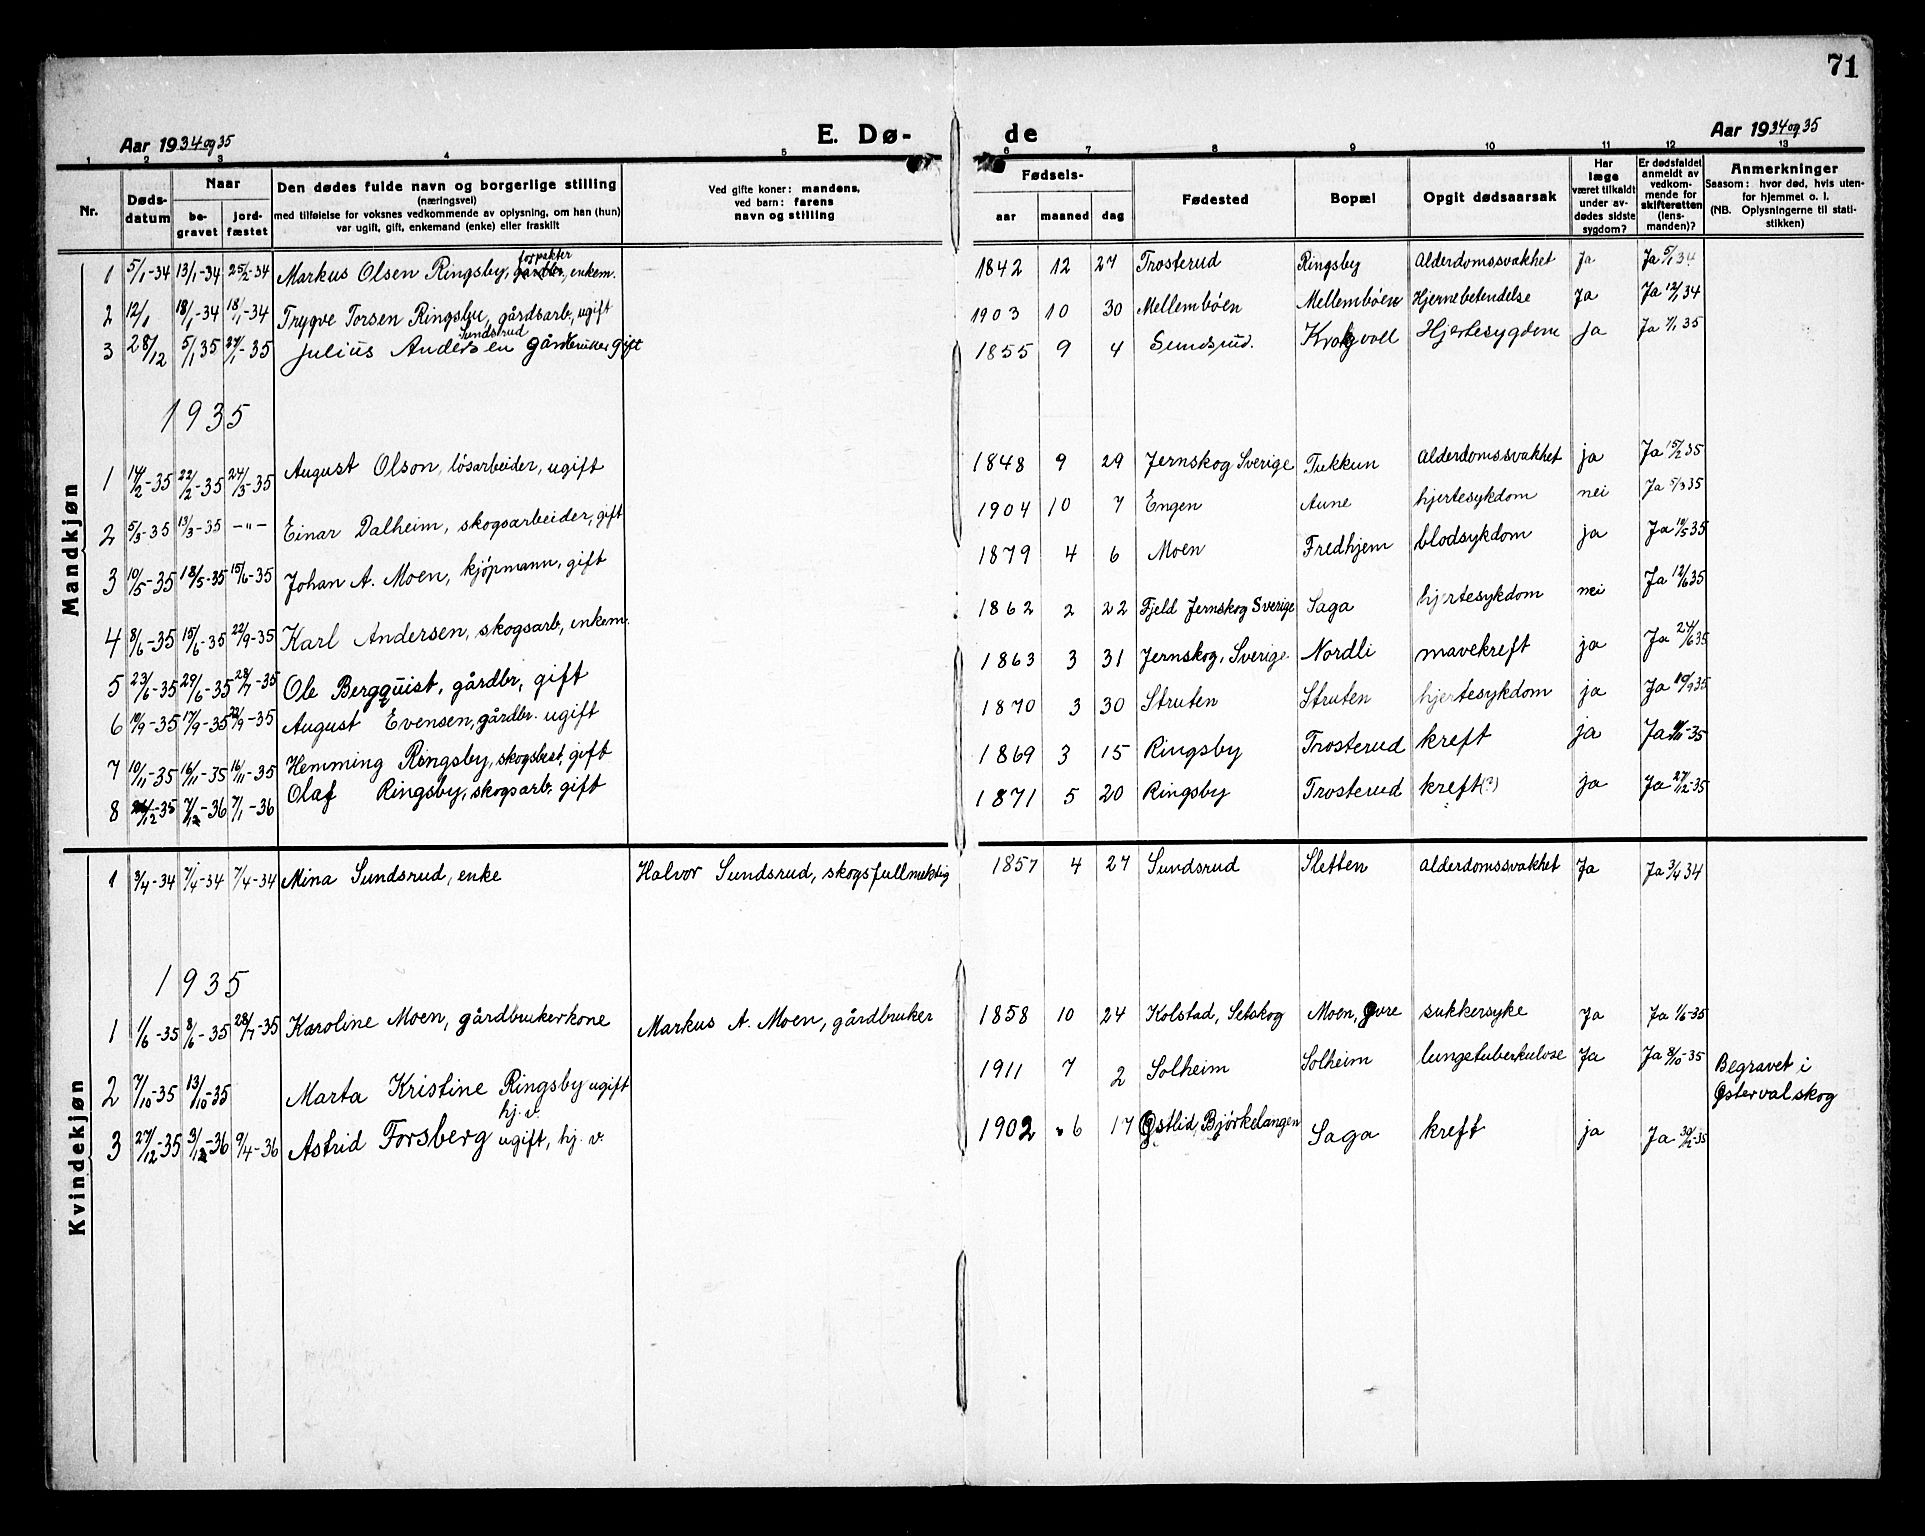 71
Aar 1934 og 35
E. Dø-
de
Aar 1934 og 35
1 2 3 4 5 6 7 8 9 10 11 12 13
Nr.
Døds-
datum
Naar
be-
gravet
jord-
fæstet
Den dødes fulde navn og borgerlige stilling
(næringsvei)
med tilføielse for voksnes vedkommende av oplysning, om han (hun)
var ugift, gift, enkemand (enke) eller fraskilt
Ved gifte koner: mandens,
ved barn: farens
navn og stilling
Fødsels-
aar maaned dag
Fødested
Bopæl
Opgit dødsaarsak
Har
læge
været tilkaldt
under av-
dødes sidste
sygdom?
Er dødsfaldet
anmeldt av
vedkom-
mende for
skifteretten
(lens-
manden)?
Anmerkninger
Saasom: hvor død, hvis uten-
for hjemmet o. l.
(NB. Oplysningerne til stati-
stikken)
Mandkjøn
1 5/1-34 13/1-34 25/2-34 Markus Olsen Ringsby, forpakter, enkem. 1842 12 27 Trosterud Ringsby Alderdomssvakhet Ja Ja 5/1 34
2 12/1 18/1-34 18/1-34 Trygve Torsen Ringsby, gårdsarb., ugift 1903 10 30 Mellembøen Mellembøen Hjernebetendelse Ja Ja 12/1 34
3 28/12 5/1 35 27/1-35 Julius Andersen Sundsrud gårdbruker gift 1855 9 4 Sundsrud. Krokvoll Hjertesygdom ja Ja 7/1 35
1935
1 14/2-35 22/2-35 24/3-35 August Olson, løsarbeider, ugift 1848 9 29 Jernskog Sverige Tukkun alderdomssvakhet ja Ja 15/2 35
2 5/3-35 13/3-35 -"- Einar Dalheim, skogsarbeider, gift 1904 10 7 Engen Aune hjertesykdom nei Ja 5/3 35
3 10/5-35 18/5-35 15/6-35 Johan A. Moen, kjøpmann, gift 1879 4 6 Moen Fredhjem blodsykdom ja Ja 10/5 35
4 8/6-35 15/6-35 22/9-35 Karl Andersen, skogsarb., enkem. 1862 2 22 Fjeld Jernskog Sverige Saga hjertesykdom nei Ja 12/6 35
5 23/6-35 29/6-35 28/7-35 Ole Bergquist, gårdbr., gift 1863 3 31 Jernskog, Sverige Nordli mavekreft ja Ja 24/6 35
6 10/9-35 17/9-35 22/9-35 August Evensen, gårdbr. ugift 1870 3 30 Struten Struten hjertesykdom ja Ja 10/9 35
7 10/11-35 16/11-35 16/11-35 Hemming Ringsby, gift 1869 3 15 Ringsby Trosterud kreft ja Ja -35
8 /12-35 7/1-36 7/1-36 Olaf Ringsby, skogsarb. gift 1871 5 20 Ringsby Trosterud kreft (?) ja Ja 27/12-35
Kvindekjøn
1 3/4-34 7/4-34 7/4-34 Mina Sundsrud, enke Halvor Sundsrud, skogsfullmektig 1857 4 27 Sundsrud Sletten alderdomssvakhet Ja Ja 3/4 34
1935
1 1/6-35 8/6-35 28/7-35 Karoline Moen, gårdbrukerkone Markus A. Moen, gårdbruker 1858 10 24 Kolstad, Setskog Moen, Øvre sukkersyke Ja Ja 1/6-35
2 7/10-35 13/10-35 Marta Kristine Ringsby ugift hj. v. 1911 7 2 Solheim Solheim lungetuberkulose Ja Ja 8/10-35 Begravet i
Østervalskog
3 27/12-35 3/1-36 9/4-36 Astrid Forsberg ugift, hj. v. 1902 6 17 Østlid, Bjørkelangen Saga kreft ja Ja 30/12-35